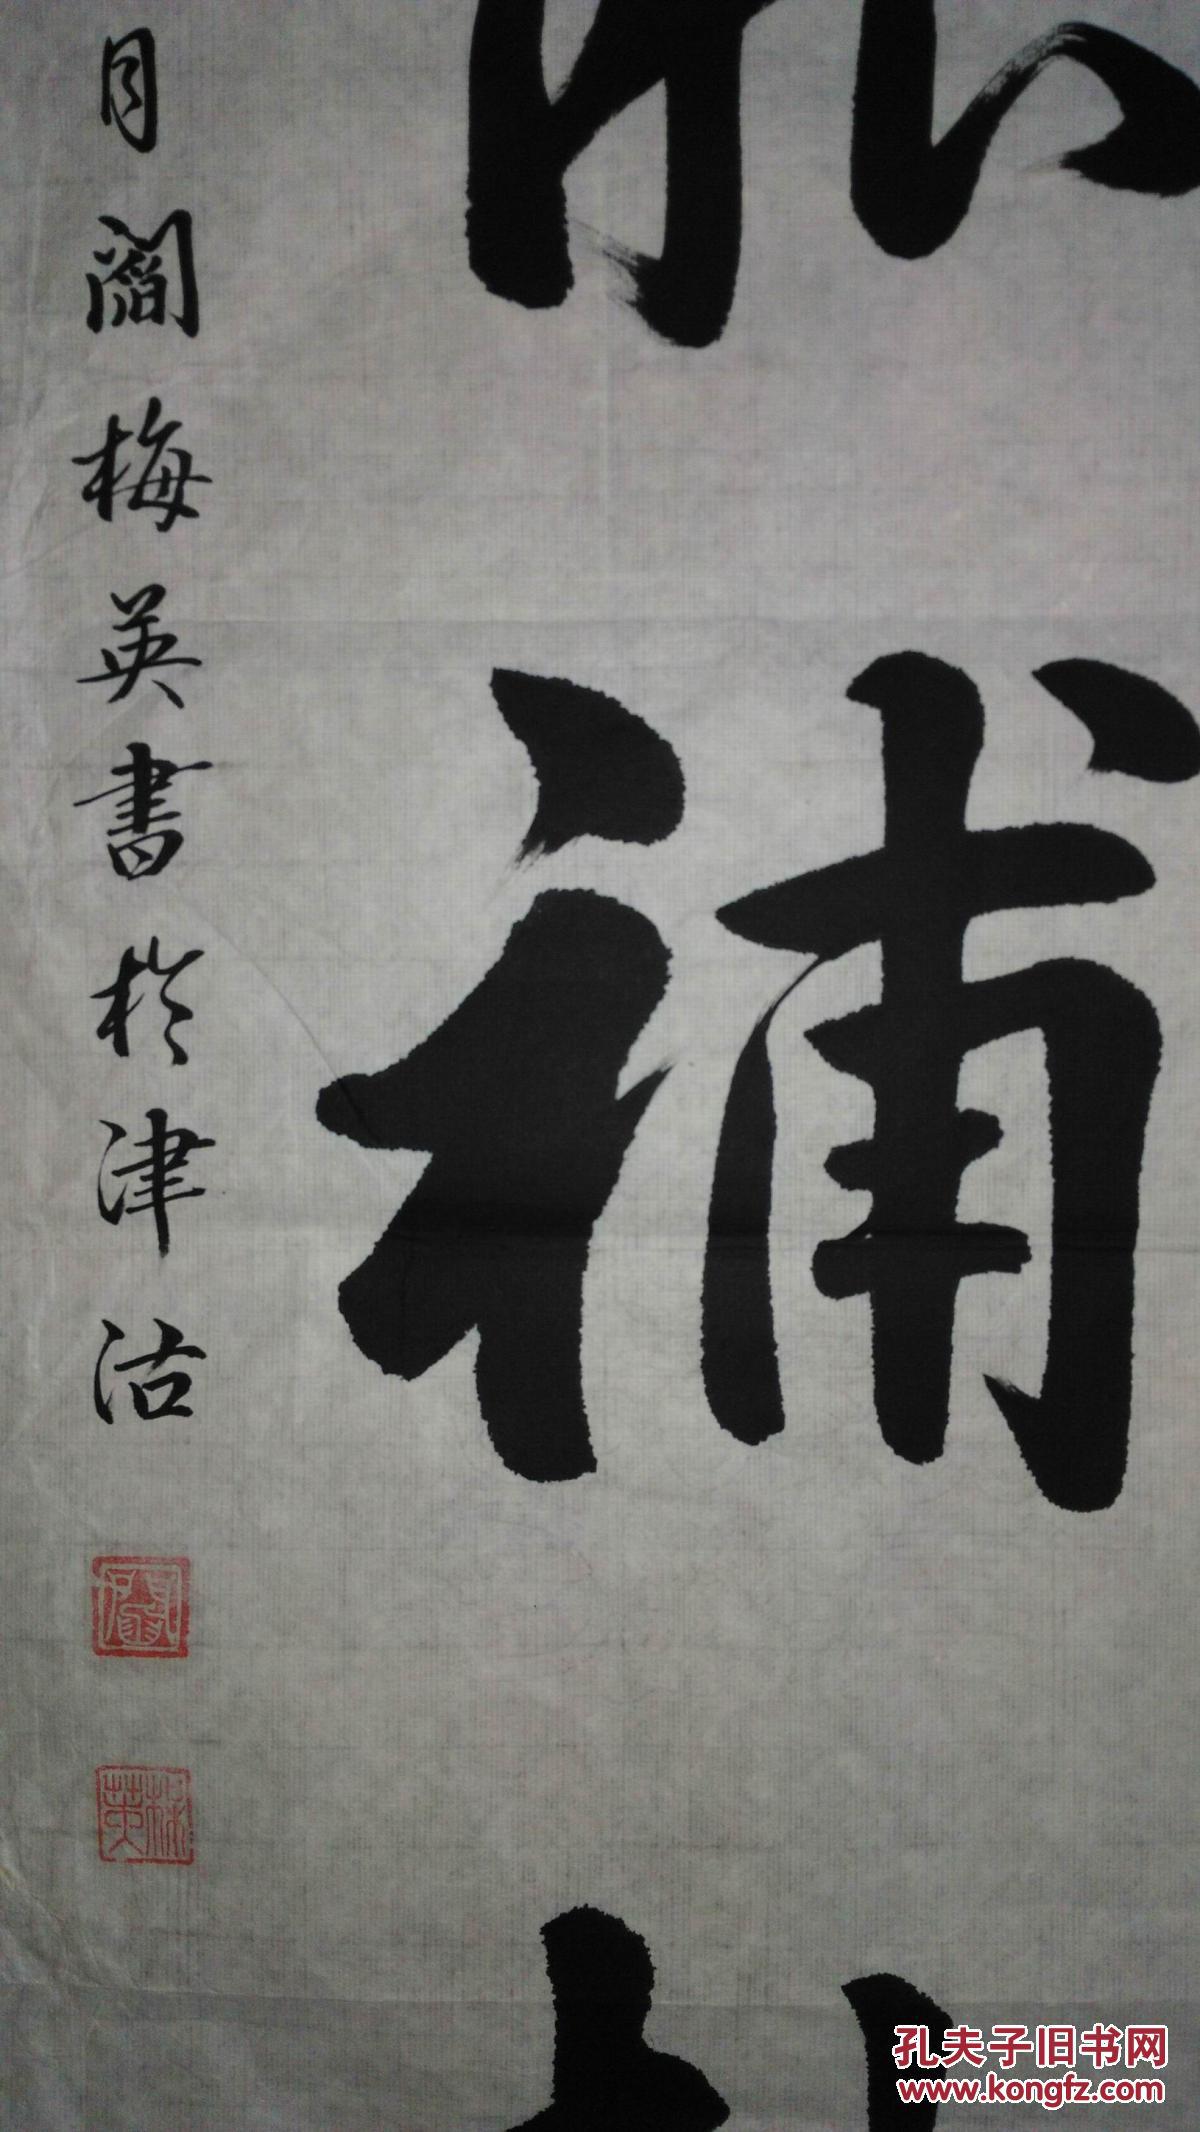 補
月閻梅英書於津沽
英梅
孔夫子旧书网
www.kongfz.com